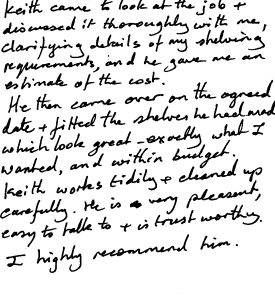 Keith came to look at the job +
discussed it thoroughly with me,
clarifying details of my shelving
requirements, and he gave me an
estimate of the cost.
He then came over on the agreed
date + fitted the shelves he had made
which look great - exactly what I
wanted, and within budget.
Keith works tidily + cleaned up
carefully. He is a very pleasant,
easy to talk to + is trustworthy.
I highly recommend him.